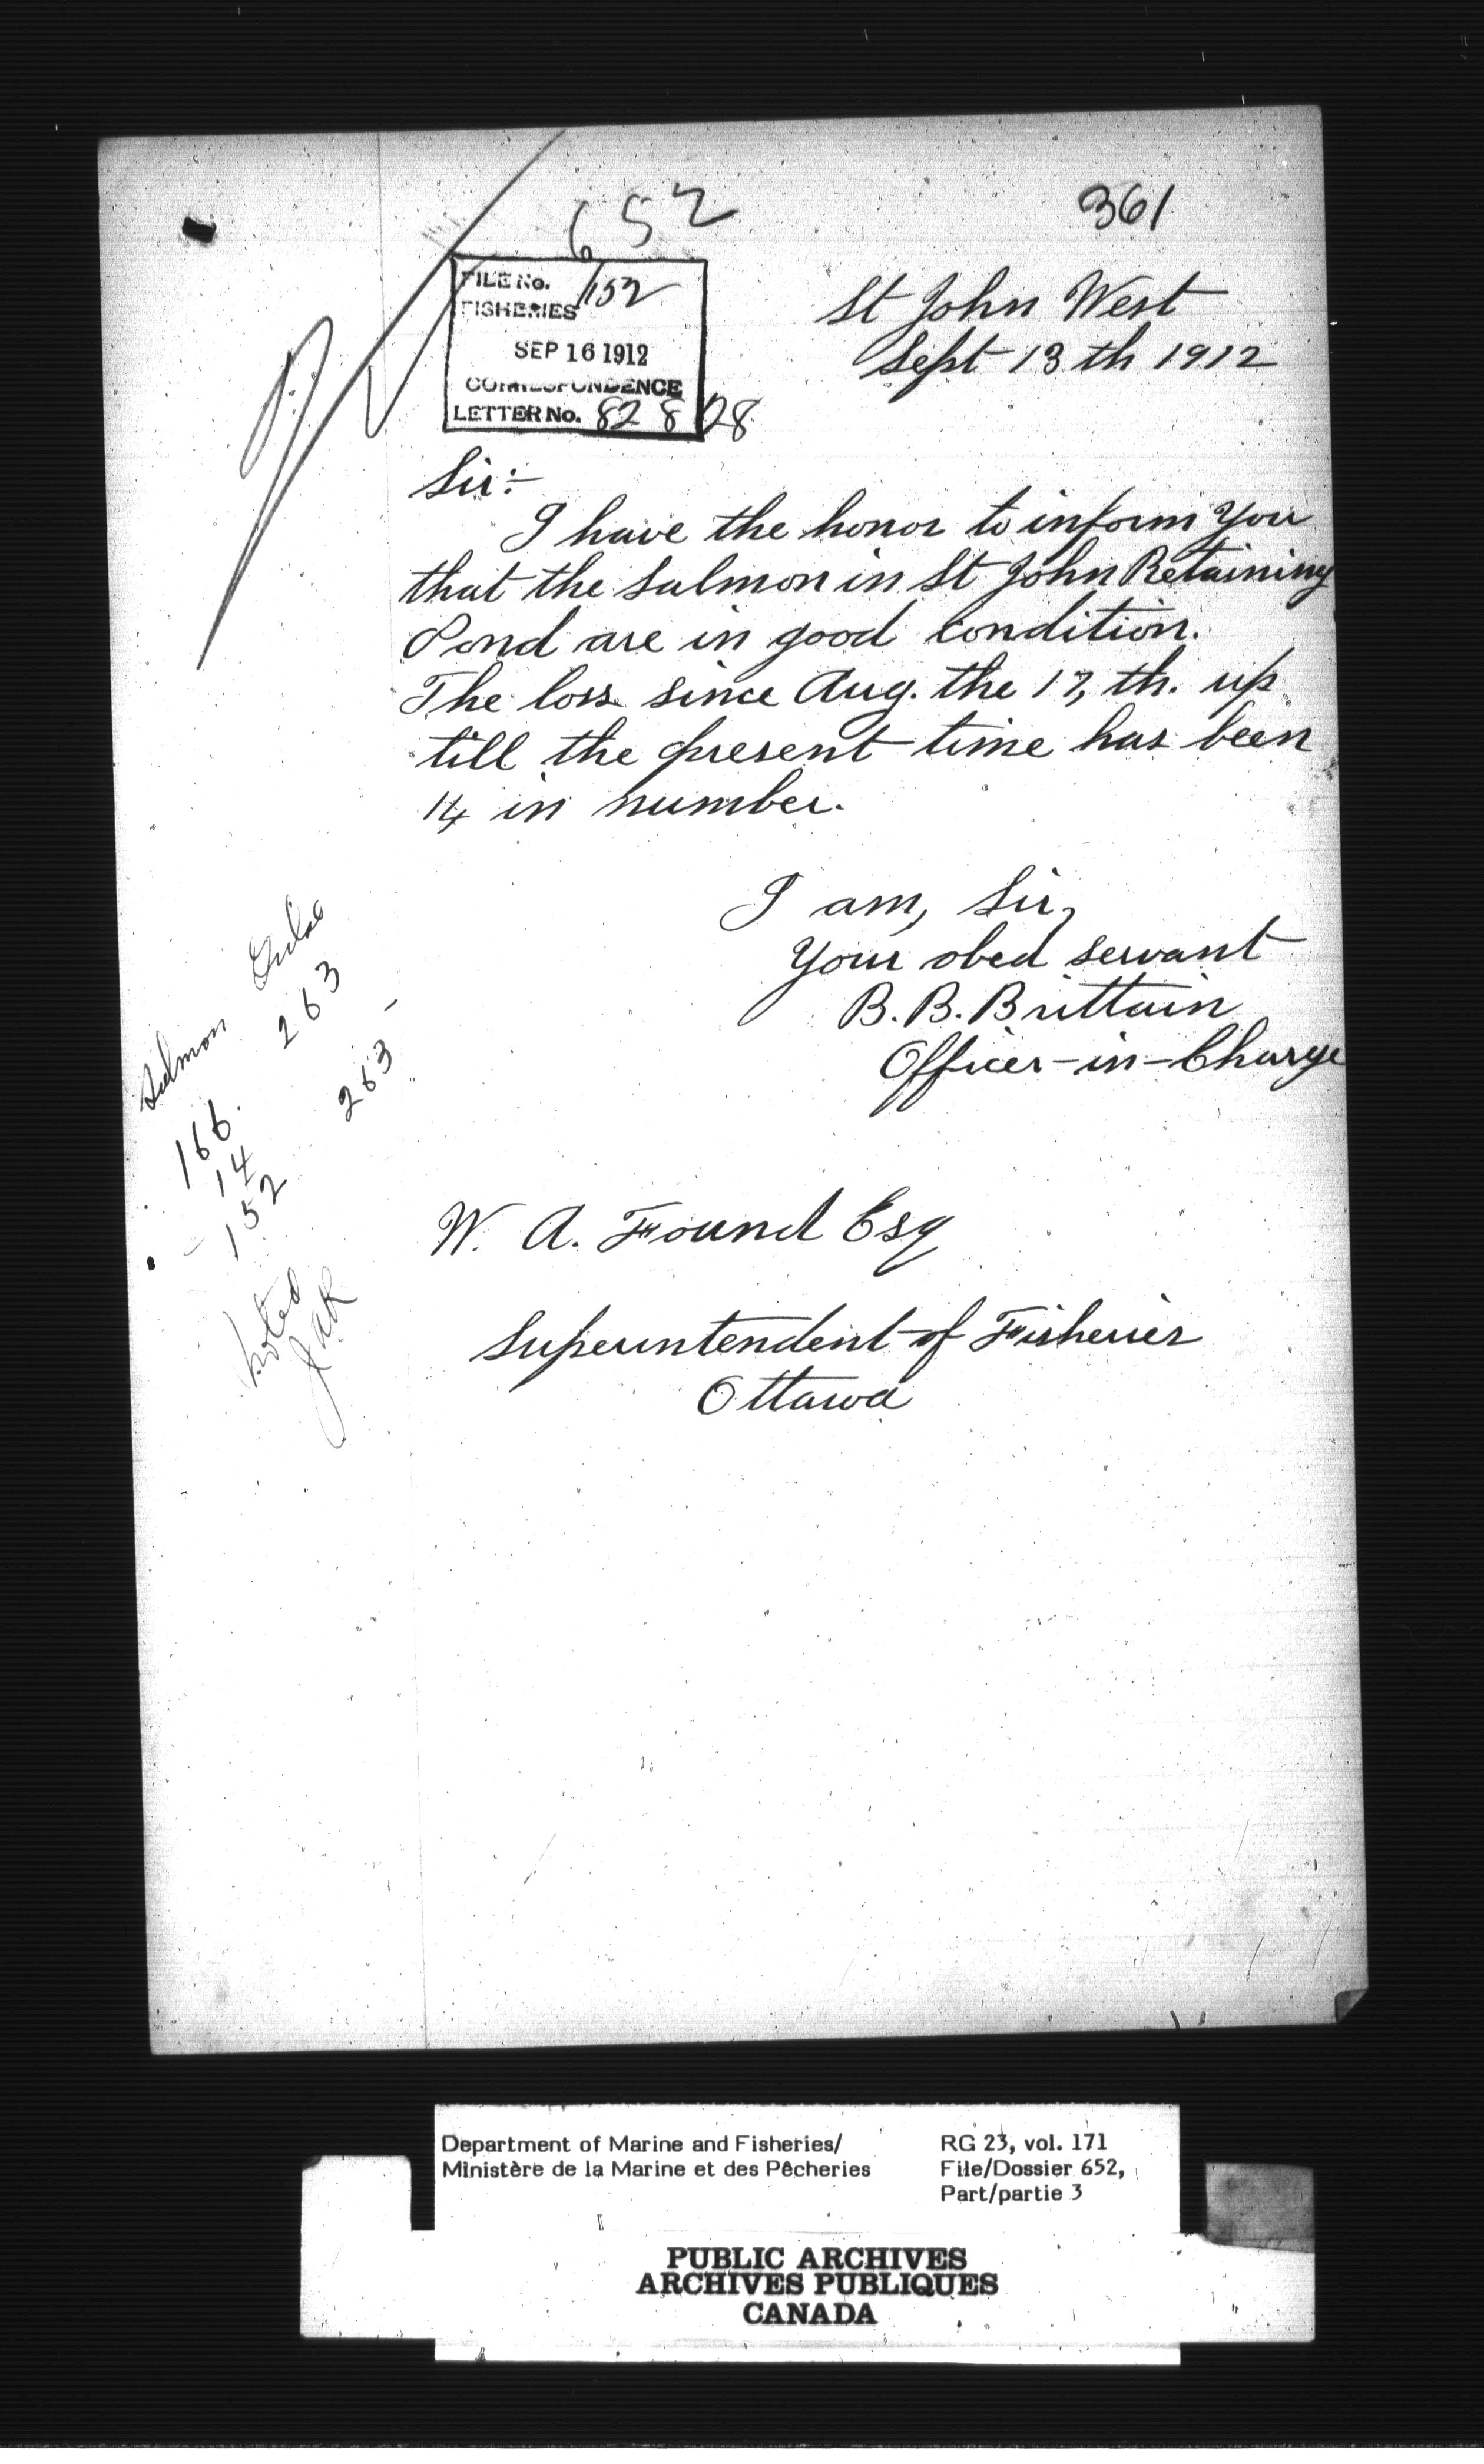 652
361
FILE No. 152
FISHERIES
SEP 16 1912
CORRESPONDENCE
LETTER No. 82828
St John West
Sept 13 th 1912
Sir:-
I have the honor to inform you
that the salmon in St John Retaining
Pond are in good condition.
The loss since Aug. the 17, th. up
till the present time has been
14 in number.
I am, Sir,
Your obed servant
B. B. Brittain
Officer-in-Charge
W. A. Found Esq
Superintendent of Fisheries
Ottawa
Salmon
166.
14
152
263
263 -
Noted
Department of Marine and Fisheries/
Ministère de la Marine et des Pêcheries
RG 23, vol. 171
File/Dossier 652,
Part/partie 3
PUBLIC ARCHIVES
ARCHIVES PUBLIQUES
CANADA